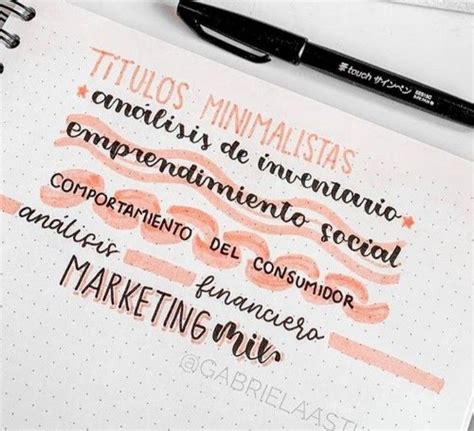 TÍTULOS MINIMALISTAS
análisis de inventario
emprendimiento social
COMPORTAMIENTO DEL CONSUMIDOR
análisis financiero
MARKETING mix
touch サインペン